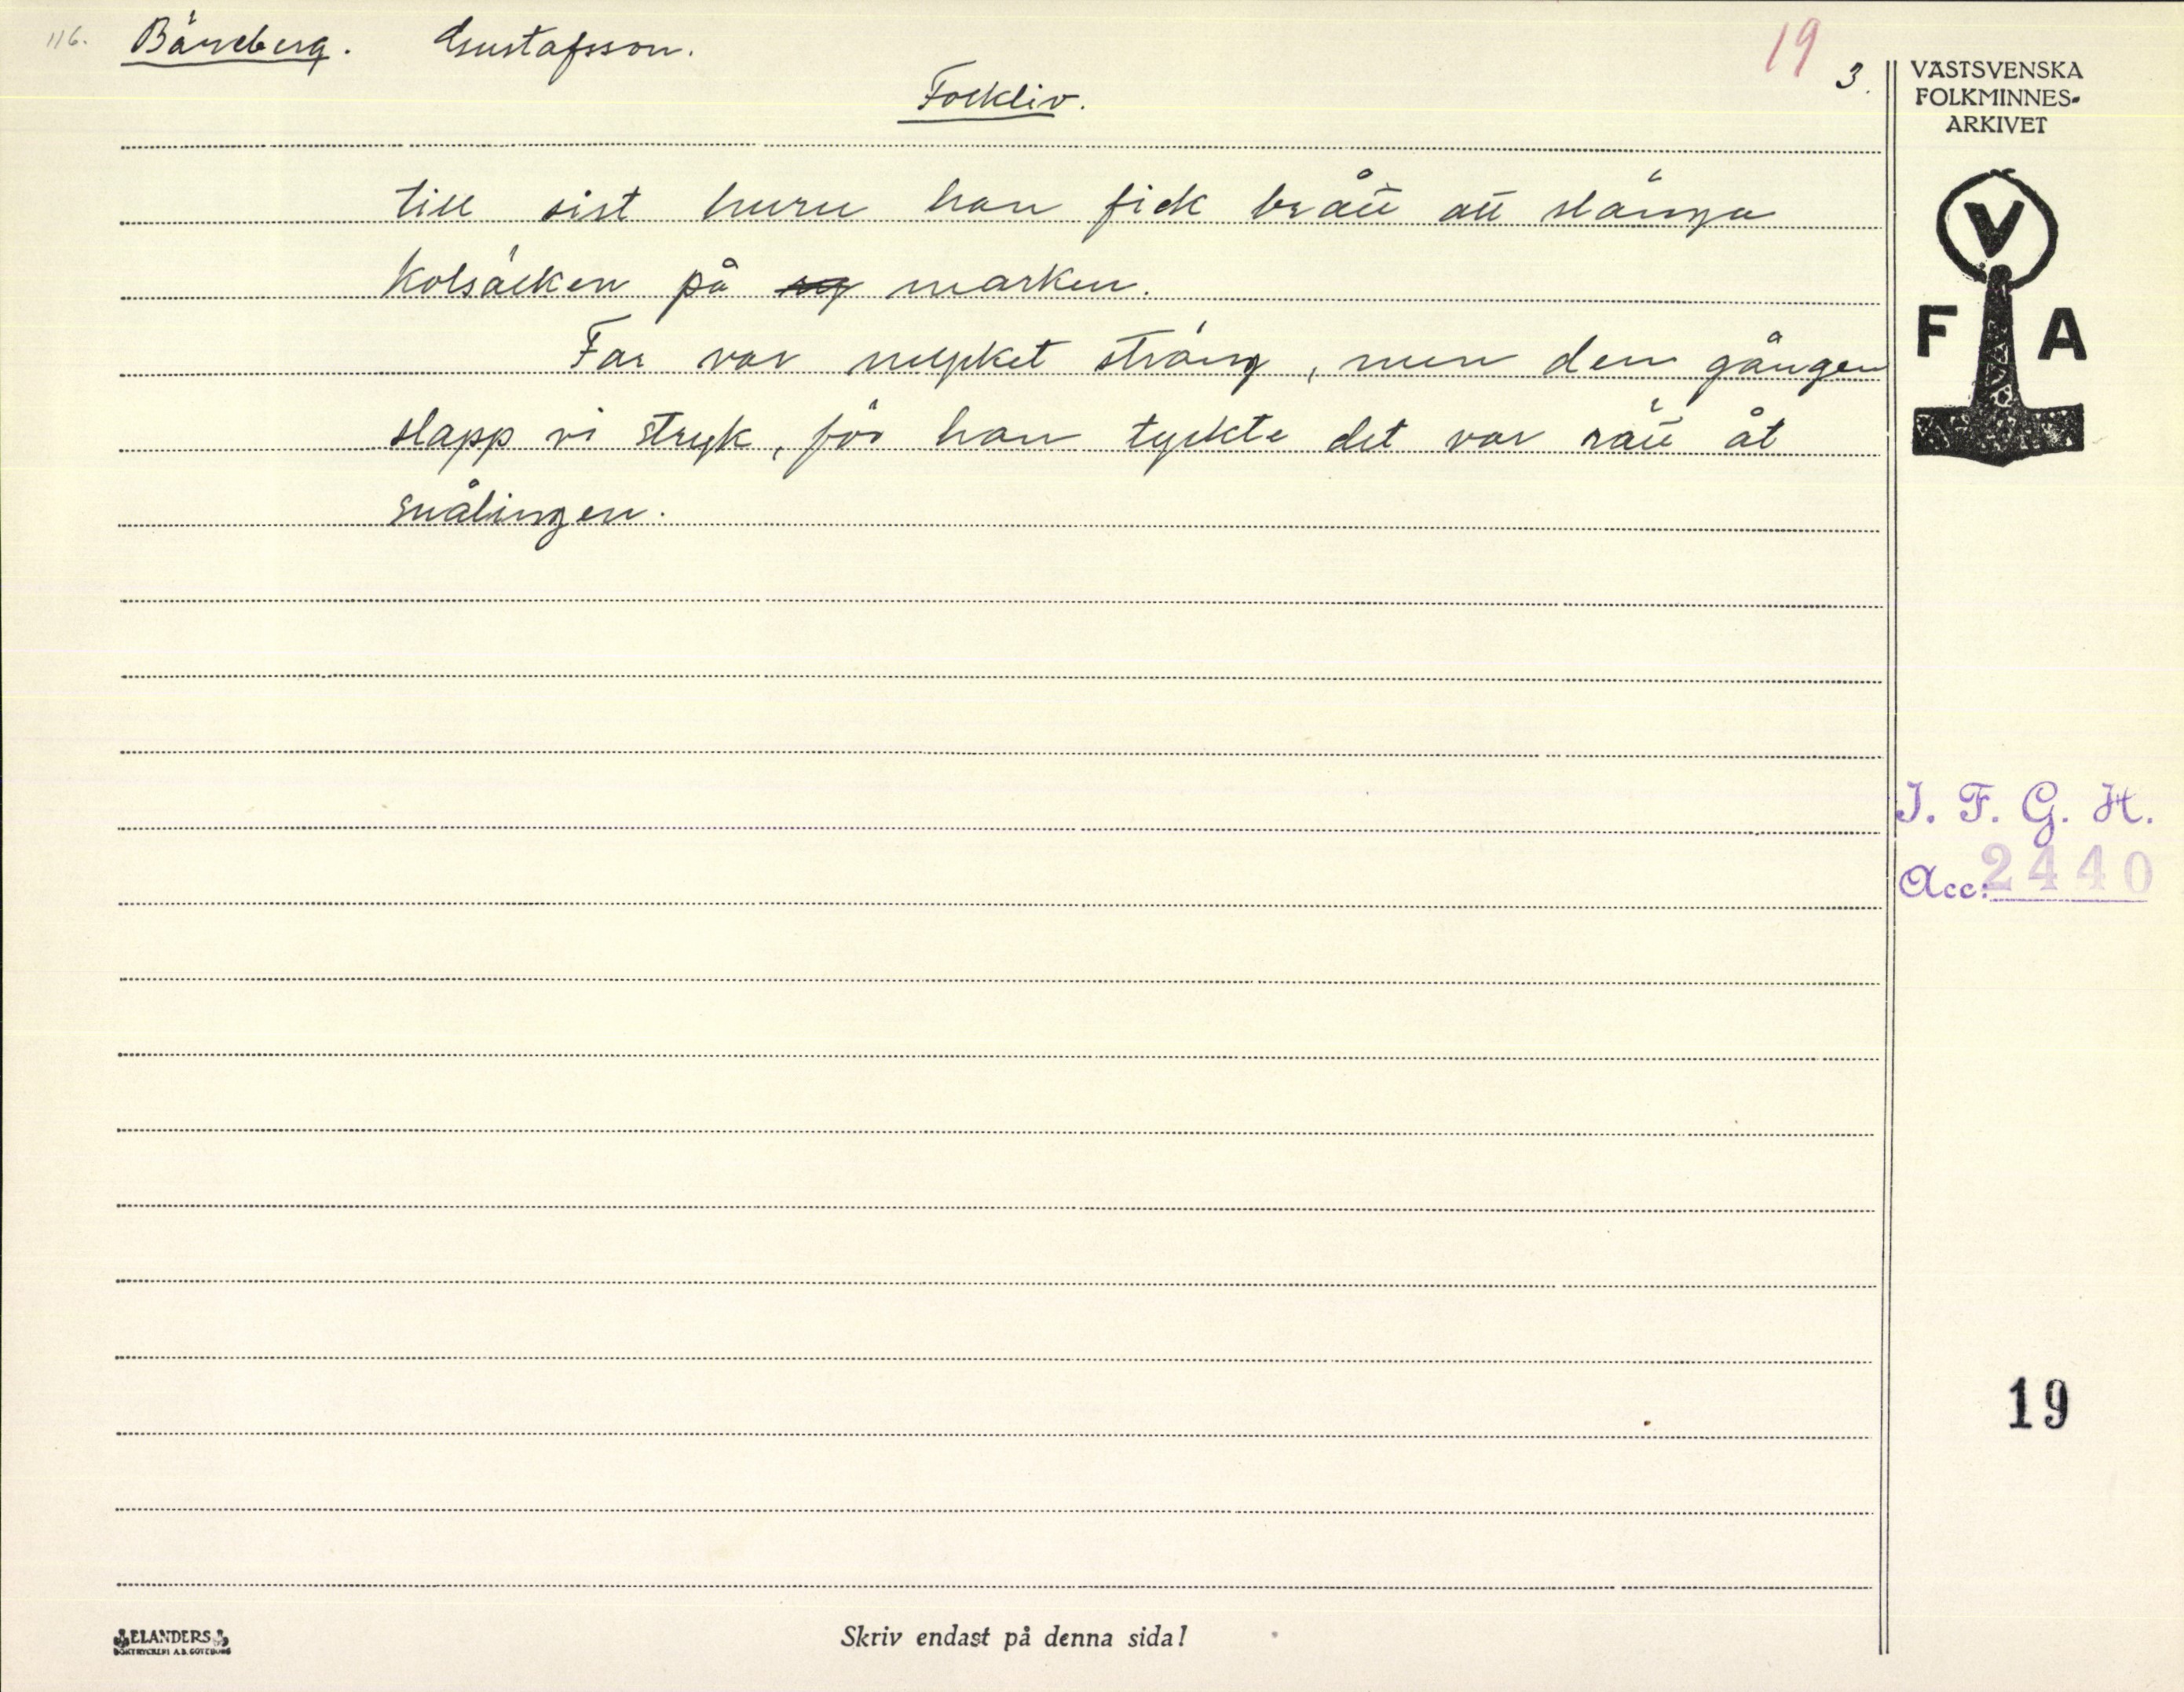 116. Bäreberg. Gustafsson. 19 3.
Folkliv.
till sist huru han fick brått att slänga
kolsäcken på marken.
Far var mycket sträng, men den gången
slapp vi stryk, för han tyckte det var rätt åt
snålingen.
VÄSTSVENSKA
FOLKMINNES-
ARKIVET
V
F A
I. F. G. H.
Acc. 2440
19
ELANDERS
BOKTRYCKERI A.B. GÖTEBORG
Skriv endast på denna sida!